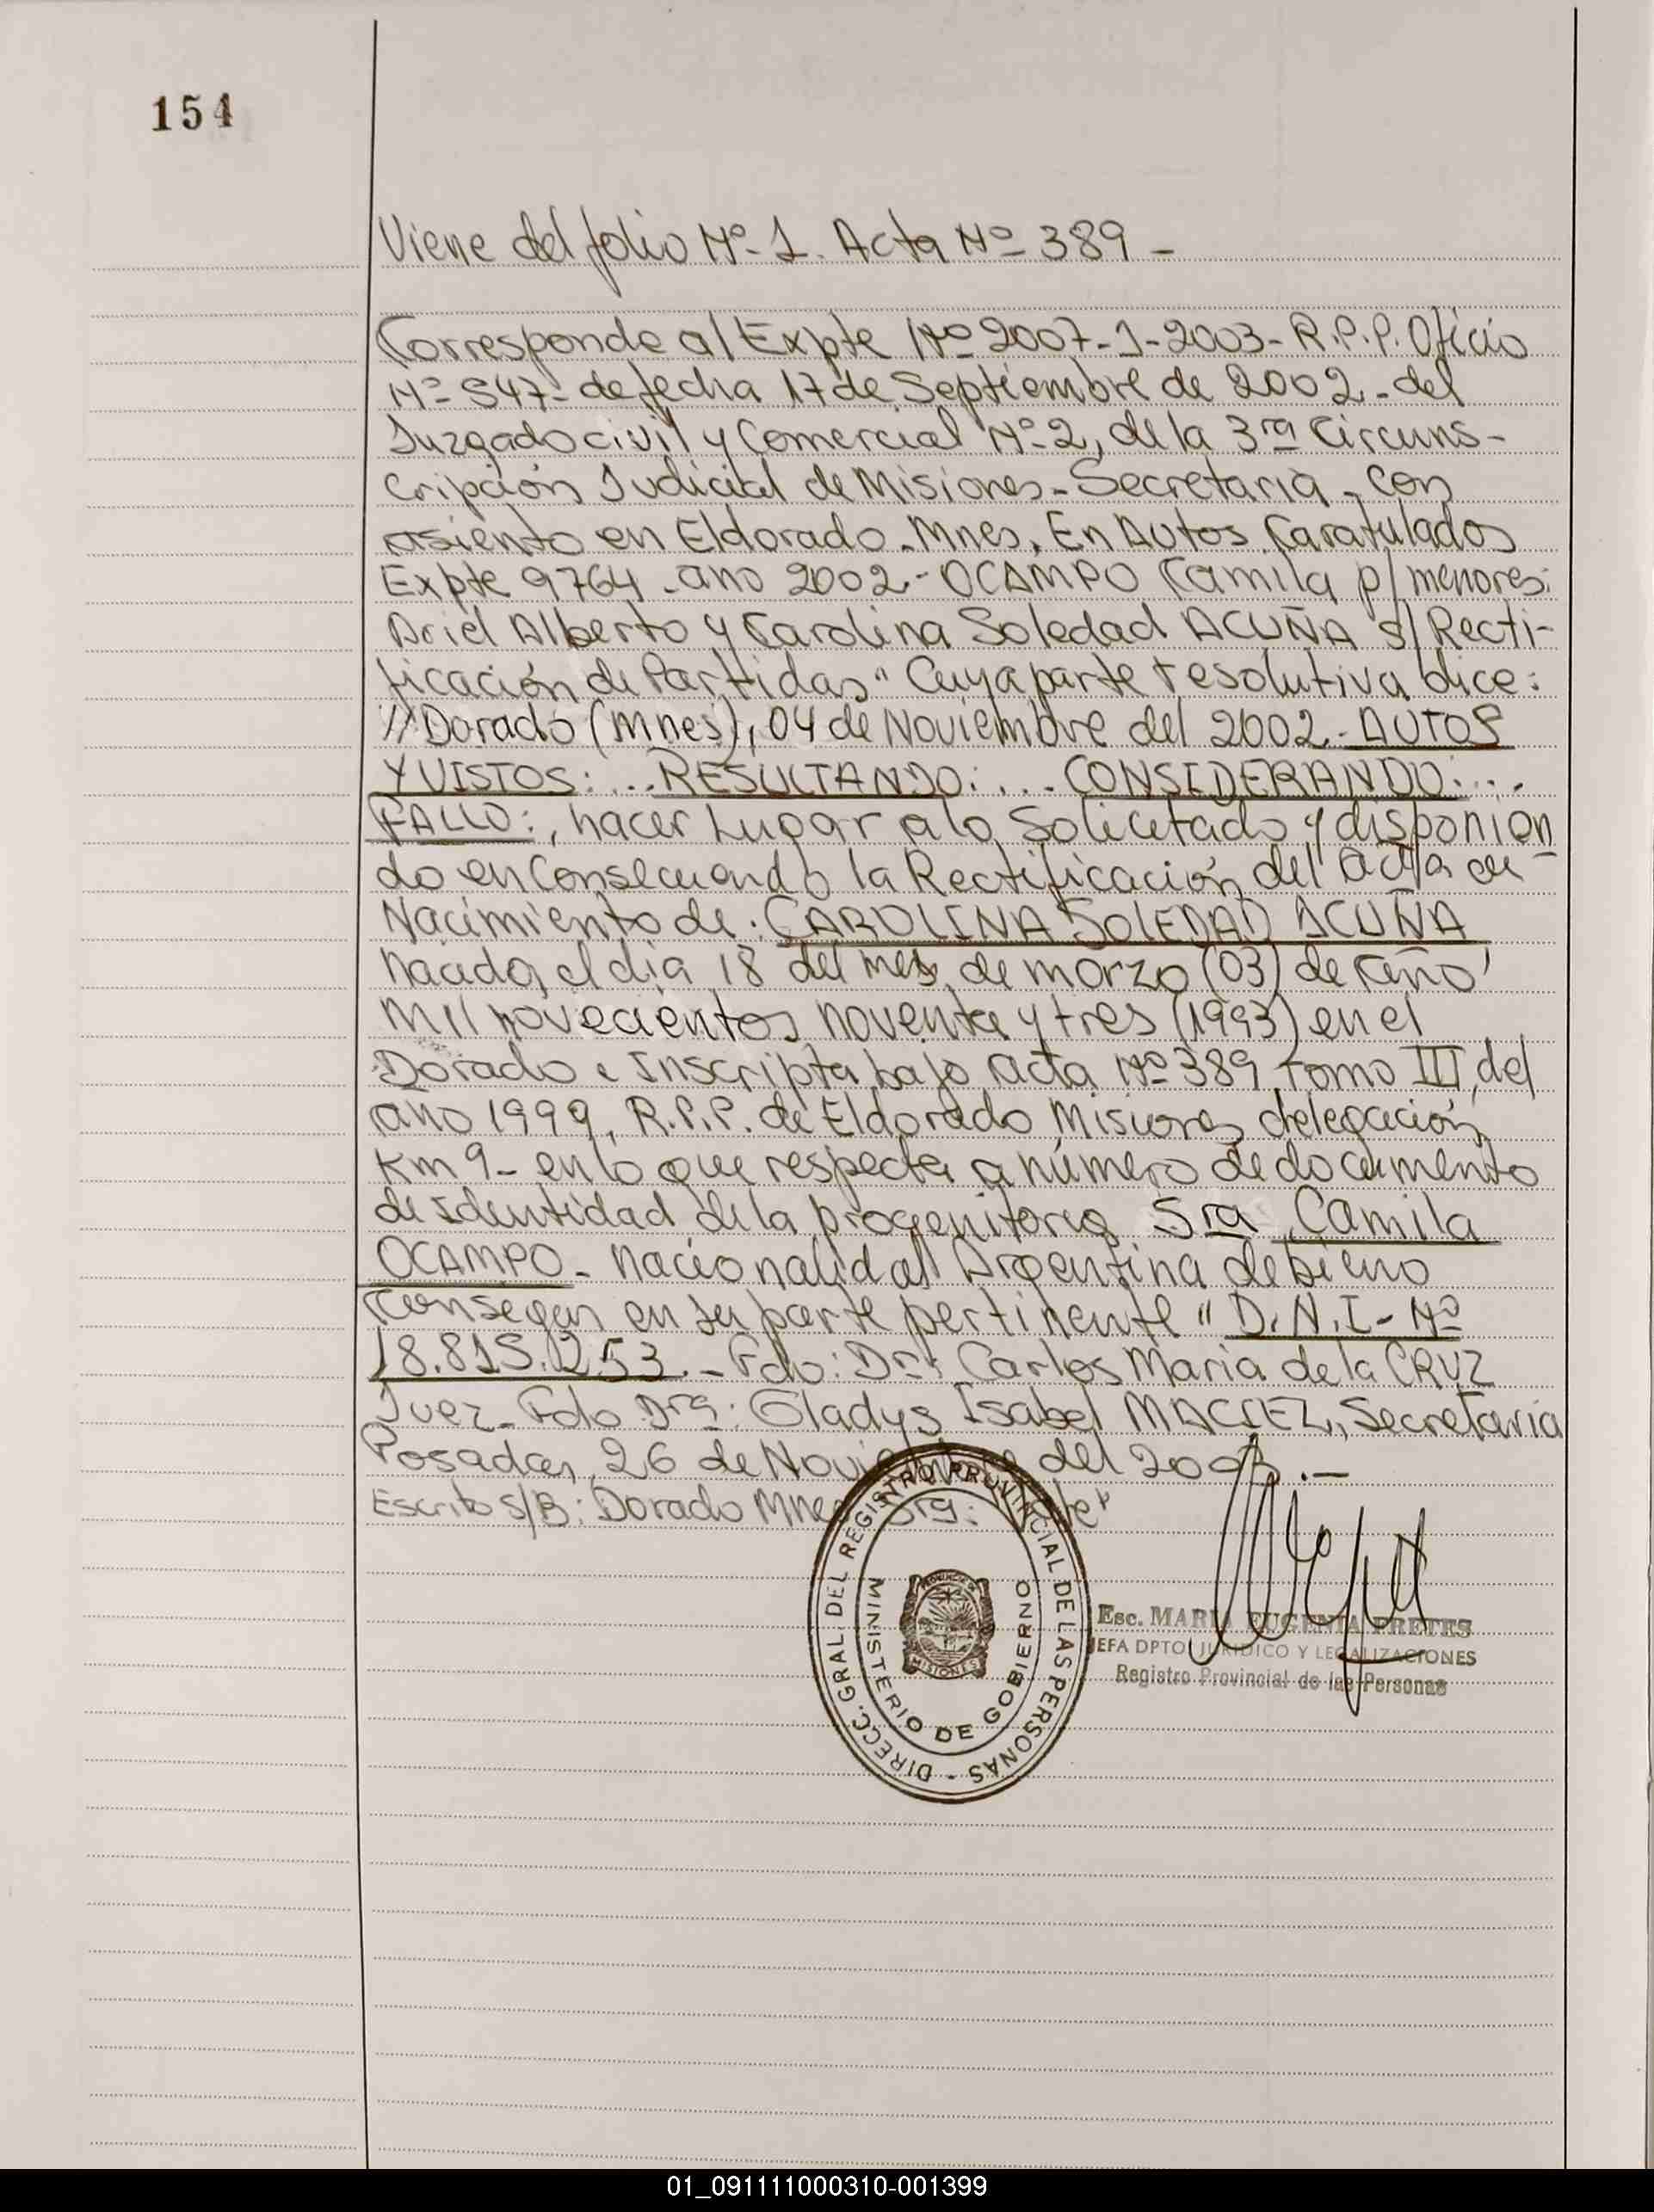 154
Viene del folio Nº 1. Acta Nº 389 -
Corresponde al Expte Nº 2007-1-2003- R.P.P. Oficio
Nº 547- de fecha 17 de Septiembre de 2002 - del
Juzgado civil y Comercial Nº 2, de la 3ra Circuns-
cripción Judicial de Misiones - Secretaria - con
asiento en Eldorado - Mnes. En Autos Caratulados
Expte 9764 - año 2002 - OCAMPO Camila p/ menores:
Ariel Alberto y Carolina Soledad ACUÑA s/ Recti-
ficación de Partidas" Cuya parte resolutiva dice:
"// Dorado (Mnes), 04 de Noviembre del 2002 - AUTOS
Y VISTOS: ... RESULTANDO: ... CONSIDERANDO: ...
FALLO:, hacer Lugar a lo Solicitado y disponien
do en la Rectificación del acta de
Nacimiento de: CAROLINA SOLEDAD ACUÑA
nacida el dia 18 del mes de marzo (03) de año
Mil novecientos noventa y tres (1993) en el
Dorado e Inscripta bajo acta Nº 389 tomo III, del
año 1999, R.P.P. de Eldorado Misiones delegación
Km 9 - en lo que respecta a número de documento
de Identidad de la progenitora Sra Camila
OCAMPO - nacionalidad Argentina debiendo
Consegar en su parte pertinente " D.N.I - Nº
18.815.253. - Fdo: Dr: Carlos Maria de la CRUZ
Juez - Fdo Dra: Gladys Isabel MACIEZ, Secretaria
Posadas, 26 de Noviembre del 2003 . -
Escrito S/B: Dorado Mnes Sra: Vale"
DIRECC. GRAL. DEL REGISTRO PROVINCIAL DE LAS PERSONAS -
MINISTERIO DE GOBIERNO
PROVINCIA DE
MISIONES
Esc. MARIA EUGENIA PRETES
JEFA DPTO. JURIDICO Y LEGALIZACIONES
Registro Provincial de las Personas
01_091111000310-001399